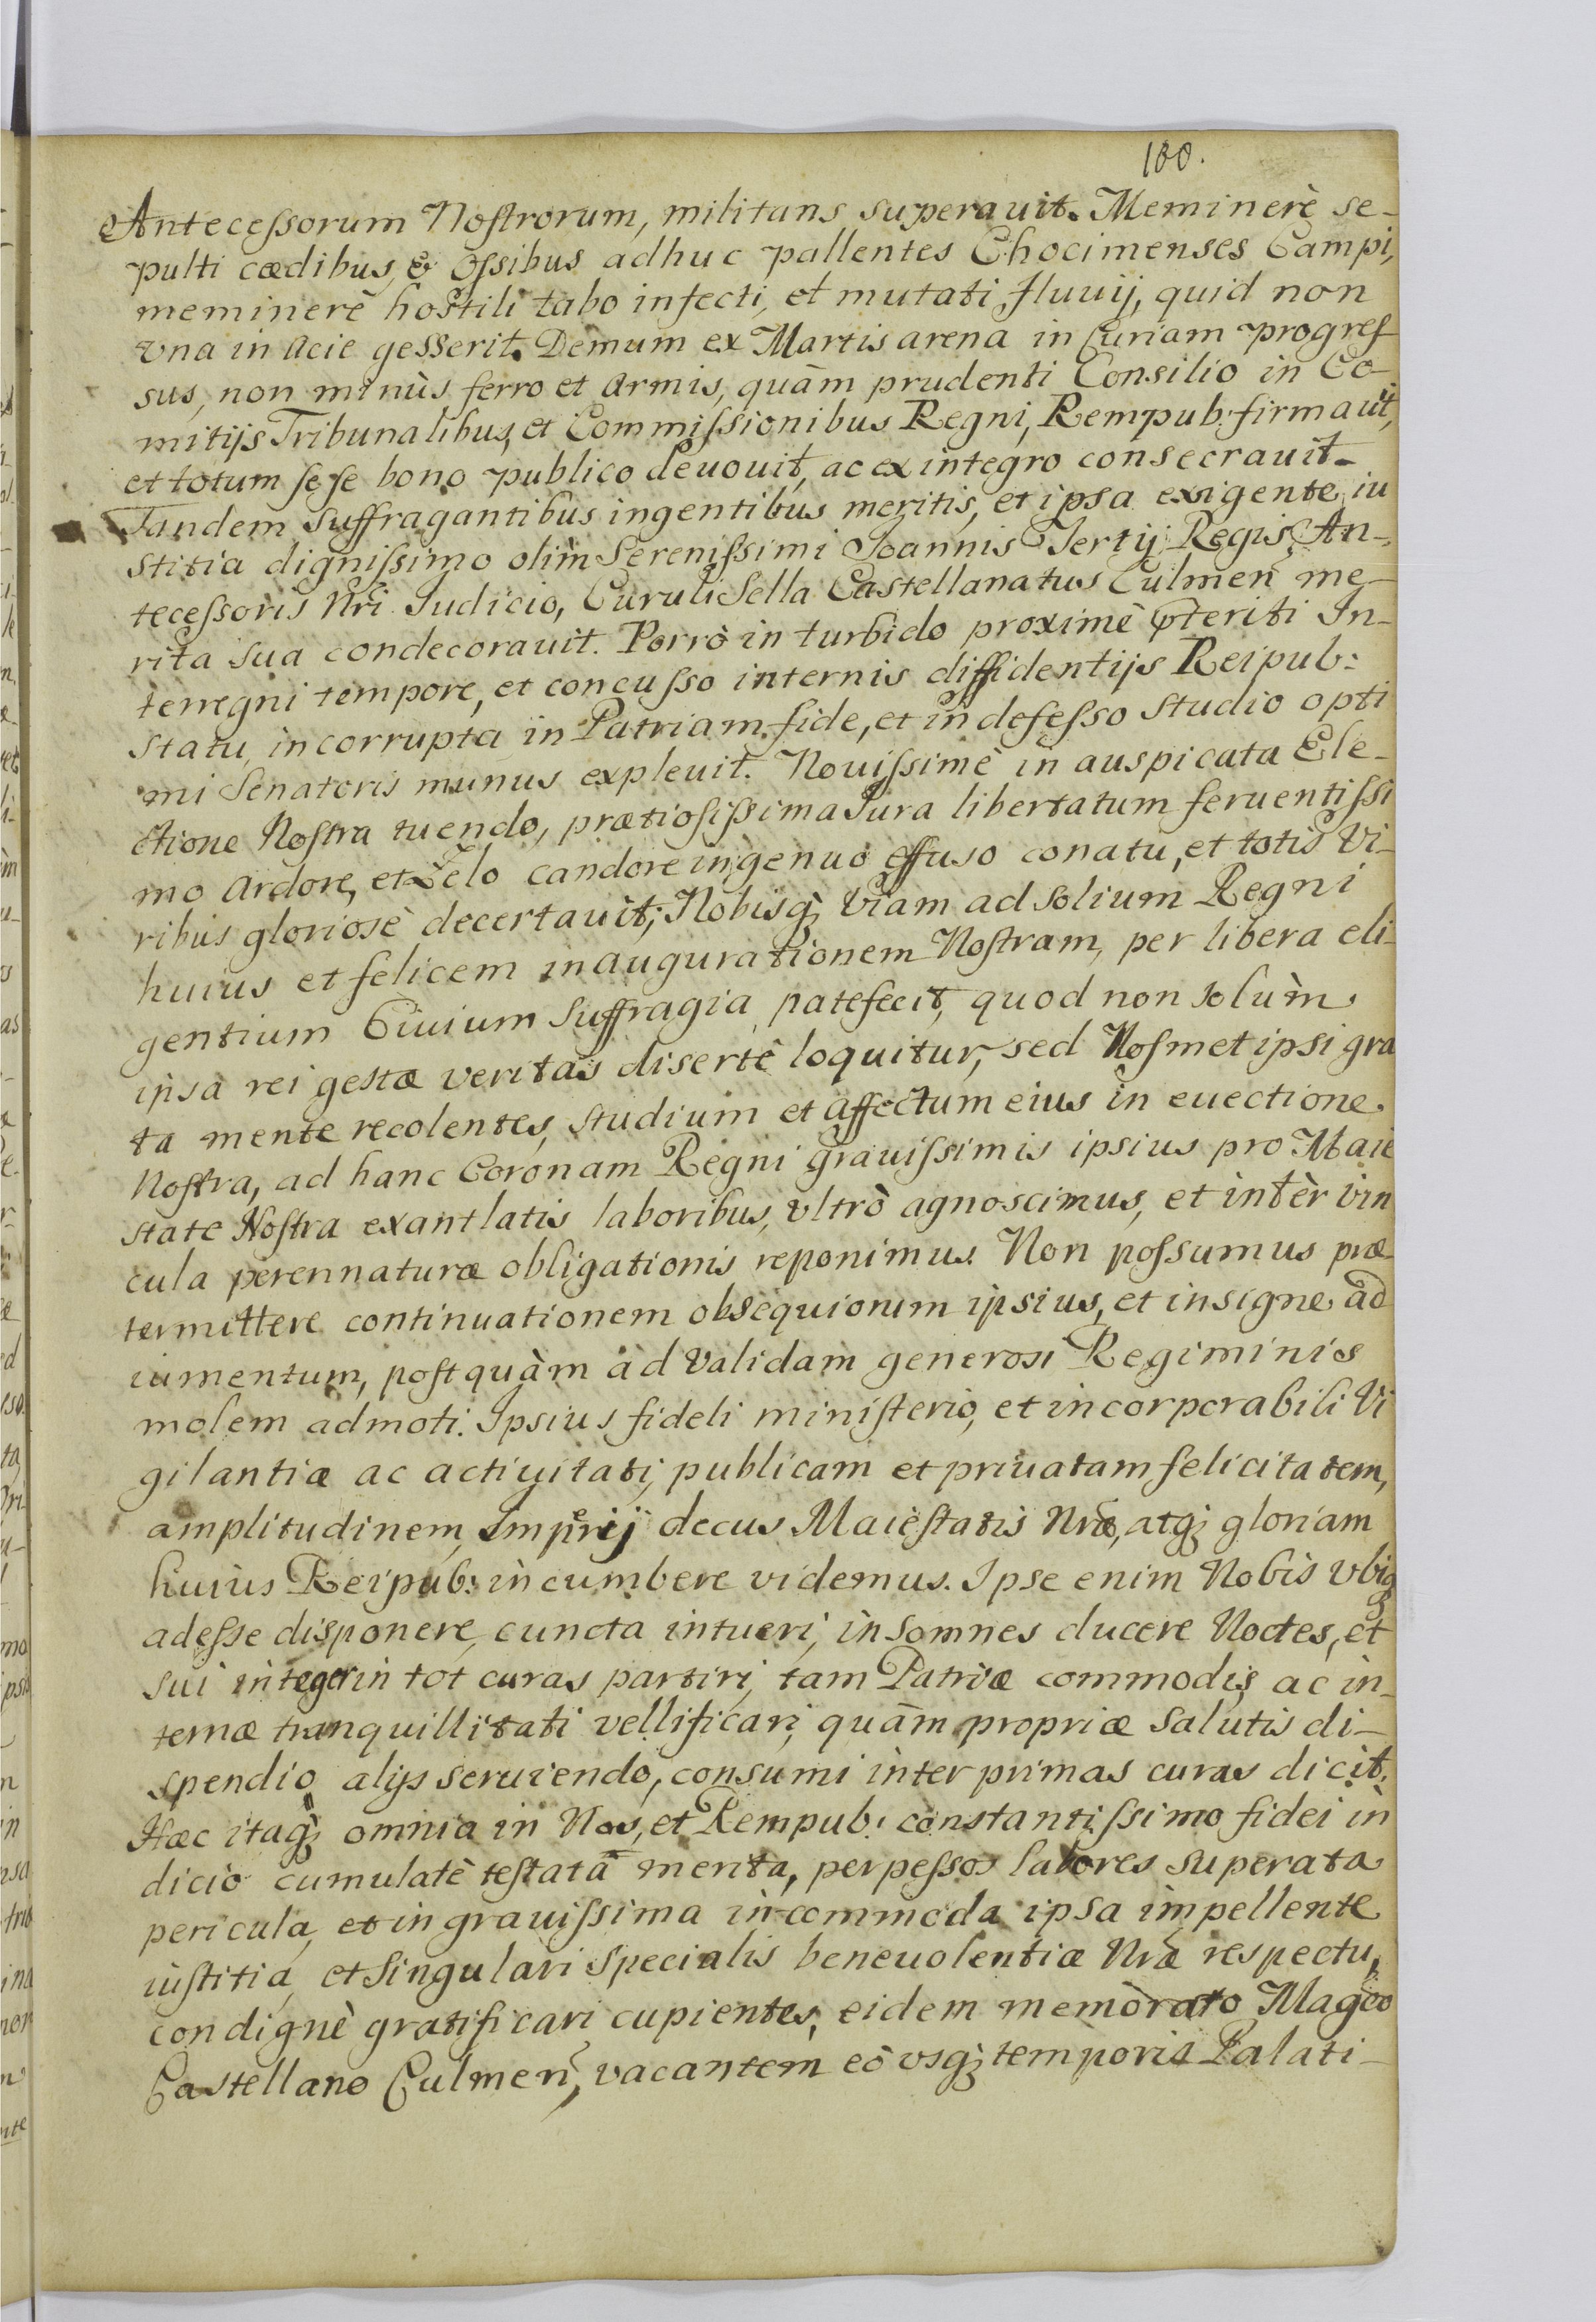 100.
Antecessorum Nostrorum, militans superauit. Meminerè se-
pulti cædibus, & Ossibus adhuc pallentes Chocimenses Campi,
meminerè hostili tabo infecti, et mutati Fluuij, quid non
vna in Acie gesserit. Demum ex Martis arena in Curiam progres
sus, non minùs ferro et Armis, quàm prudenti Consilio in Co-
mitijs Tribunalibus, et Commissionibus Regni, Rempub: firmauit,
et totum sese bono publico deuouit, ac ex integro consecrauit.
Tandem Suffragantibus ingentibus meritis, et ipsa exigente iu
stitia dignissimo olim Serenissimi Ioannis Tertij Regis An-
tecessoris Nri Iudicio, Curuli Sella Castellanatus Culmen͂ me-
rita sua condecorauit. Porrò in turbido proximè p͂teriti In-
terregni tempore, et concusso internis diffidentijs Reipub:
statu, incorrupta in Patriam fide, et indefesso studio opti
mi Senatoris munus expleuit. Nouissimè in auspicata Ele-
ctione Nostra tuendo, prætiosissima Iura libertatum feruentissi
mo Ardore, et Zelo candore ingenuo effuso conatu, et totis Vi-
ribus gloriosè decertauit; Nobisq; Viam ad Solium Regni
huius et felicem inaugurationem Nostram, per libera eli-
gentium Ciuium Suffragia patefecit, quod non solùm
ipsa rei gestæ veritas disertè loquitur, sed Nosmet ipsi gra
ta mente recolentes, studium et affectum eius in euectione
Nostra, ad hanc Coronam Regni grauissimis ipsius pro Maie
state Nostra exantlatis laboribus, vltrò agnoscimus, et intèr vin
cula perennaturæ obligationis reponimus. Non possumus præ
termittere continuationem obsequiorum ipsius, et insigne ad
iumentum, postquàm ad Validam generosi Regiminis
molem admoti. Ipsius fideli ministerio, et incorporabili Vi
gilantiæ ac actiuitati, publicam et priuatam felicitatem,
amplitudinem, Imperij decus Maiestatis Nræ, atq; gloriam
huius Reipub: incumbere videmus. Ipse enim Nobis vbiq
adesse disponere, cuncta intueri, insomnes ducere Noctes, et
sui integer in tot curas partiri, tam Patriæ commodis ac in-
ternæ tranquillitati vellificari, quàm propriæ Salutis di-
spendio alijs seruiendo, consumi inter primas curas dicit.
Hæc itaq; omnia in Nos, et Rempub: constantissimo fidei in
dicio cumulatè testata merita, perpessos labores superata
pericula, et in grauissima incommoda ipsa impellente
iustitia, et Singulari Specialis beneuolentiæ Nræ respectu,
condignè gratificari cupientes, eidem memorato Magco
Castellano Culmen͂, vacantem eò vsq; temporis Palati-